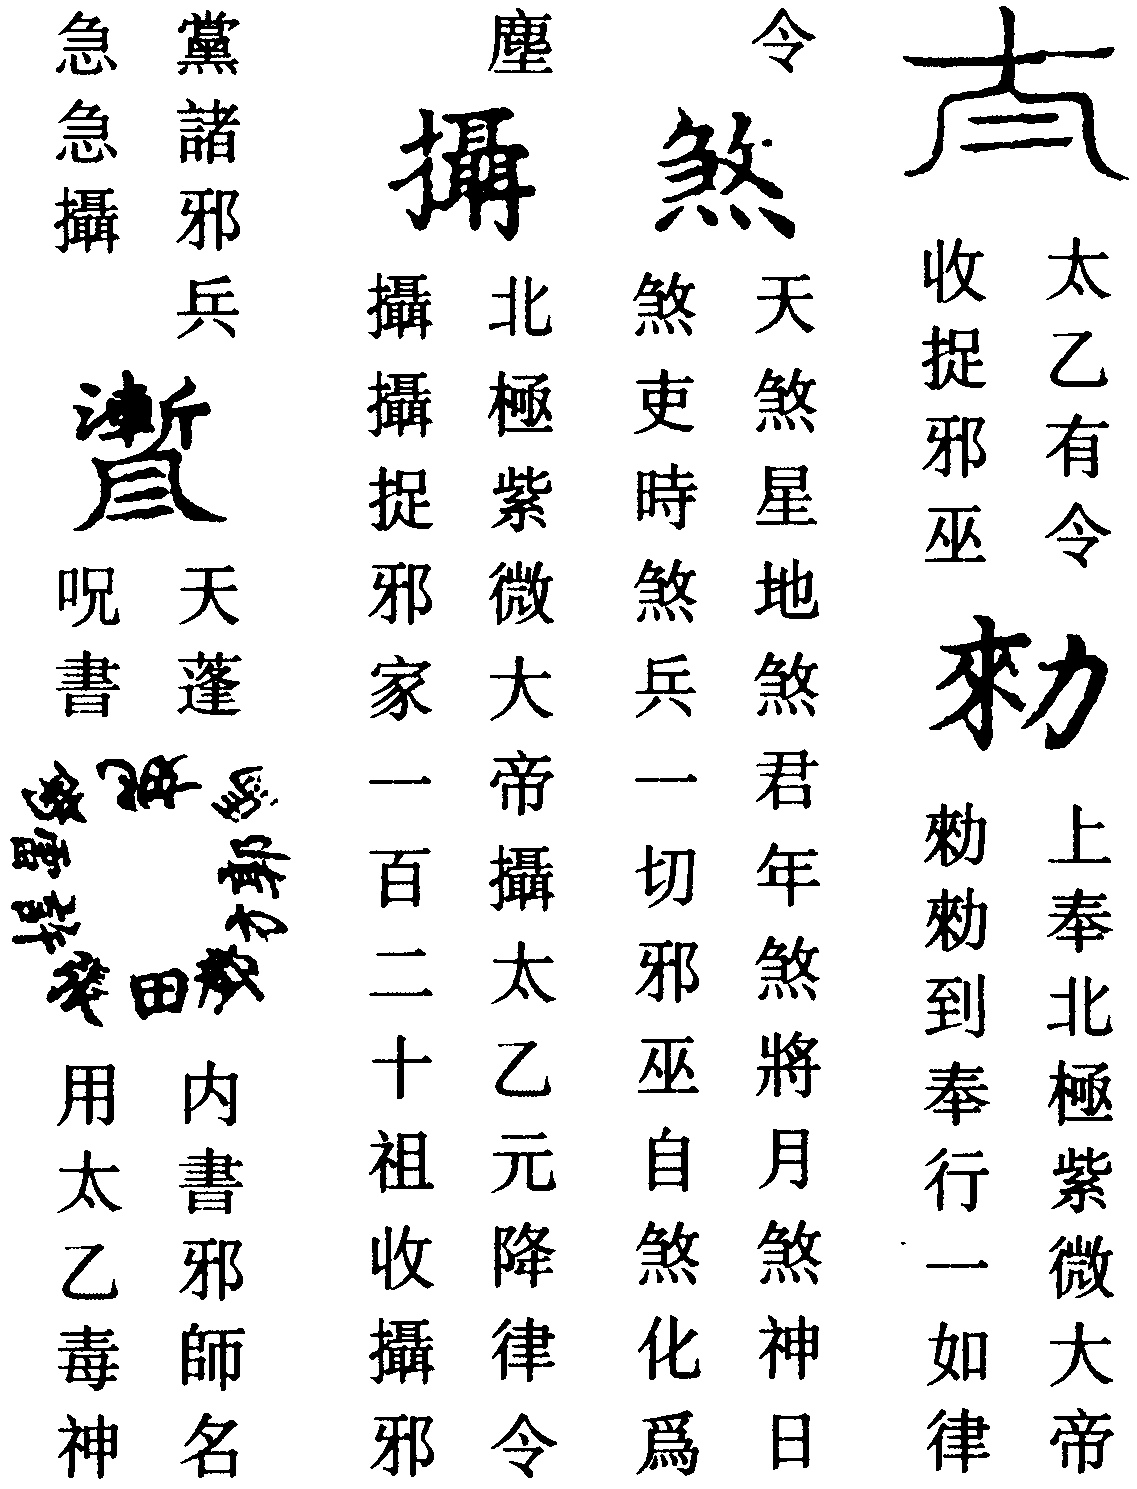 太乙有令
收捉邪巫
勑
上奉北極紫微大帝
勑勑到奉行一如律
令
煞
天煞星地煞君年煞將月煞神日
煞吏時煞兵一切邪巫自煞化爲
塵
攝
北極紫微大帝攝太乙元降律令
攝攝捉邪家一百二十祖收攝邪
黨諸邪兵
急急攝
天蓬
呪書
内書邪師名
用太乙毒神